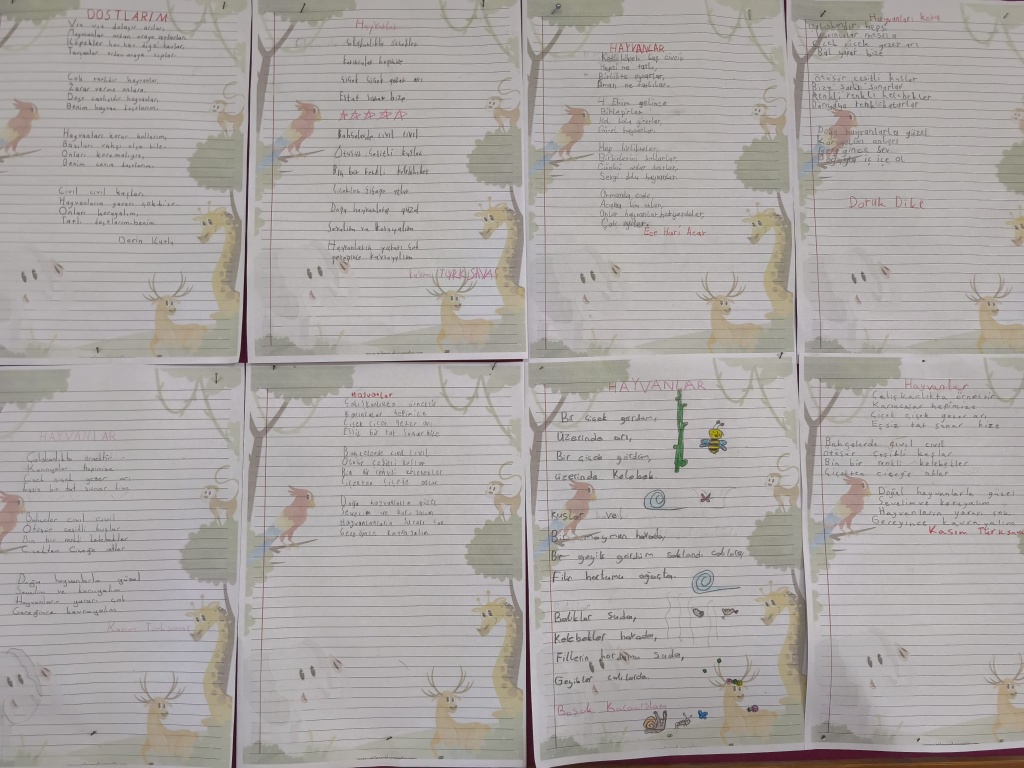 DOSTLARIM
Vız vız dolaşır arılar,
Maymunlar ordan oraya zıplarlar
Köpekler hav hav diye havlar,
Tavşanlar ordan oraya zıplar.
Çok tatlıdır hayvanlar,
Zarar verme onlara.
Doğa canlısıdır hayvanlar,
Benim hayvan dostlarım.
Hayvanları korur kollarım,
Bazıları vahşi olsa bile.
Onları korumalıyız,
Benim canım dostlarım.
Civil civil kuşlar,
Hayvanların yararı çoktur
Onları koruyalım,
Tatlı dostlarım benim
Derin
Hayvanlar
Çalışkanlıkta örnektir
Karıncalar hepimize
Çiçek çiçek gezer arı
Eşsiz tat sunar bize
Bahçelerde civil civil
Ötüşür çeşitli kuşlar
Bin bir renkli kelebekler
Çiçekten çiçeğe uçar
Doğa hayvanlarla güzel
Sevelim ve Koruyalım
Hayvanların yararı çok
gereğince kavrayalım
TÜRKSAVAŞ
HAYVANLAR
Kedi, köpek, kuş, civciv
Hepsi ne tatlı,
Birlikte oynarlar,
4 Ekim gelince
Birleşirler
Kol kola gezerler,
Güzel hayvanlar.
Hep birlikteler,
Birbirlerini kollarlar,
Sevgi dolu hayvanlar.
Ormanda
Onlar hayvanlar
Ece Huri Acar
Hayvanları Koru
Çalışkandır hepsi
Karıncalar mesela
Çiçek çiçek gezer arı
Bal yapar bize
Ötüşür çeşitli kuşlar
Bize şarkı sunarlar
Renkli renkli kelebekler
Dünyayı renklendirirler
Doğa hayvanlarla güzel
Koruyalım onları
Gereğince sev
Doğayla iç içe ol
Doruk
HAYVANLAR
Çalışkanlıkta örnektir
Karıncalar hepimize
Çiçek çiçek gezer arı
eşsiz bir tat sunar bize
Bahçeler civil civil
Ötüşür çeşitli kuşlar
Bin bir renkli kelebekler
Çiçekten Çiçeğe uçar
Doğa hayvanlarla güzel
Sevelim ve koruyalım
Hayvanların yararı çok
Gereğince kavrayalım
Kasım
Hayvanlar
Çalışkanlıkta örnektir
Karıncalar hepimize
Çiçek çiçek gezer arı
Eşsiz bir tat sunar bize
Bahçelerde civil civil
Ötüşür çeşitli kuşlar
Bin bir renkli kelebekler
Çiçekten çiçeğe uçar
Doğa hayvanlarla güzel
Sevelim ve koruyalım
Hayvanların yararı çok
Gereğince kavrayalım
HAYVANLAR
Bir çiçek gördüm,
Üzerinde arı,
Bir çiçek gördüm,
üzerinde Kelebek.
Kuşlar ve
Bir maymun havada,
Bir geyik gördüm saklandı çalılara,
Filin hortumu ağaçta.
Balıklar Suda,
Kelebekler havada,
Fillerin hortumu suda,
Geyikler çalılarda.
Başak
Hayvanlar
Çalışkanlıkta örnektir
Karıncalar hepimize
Çiçek çiçek gezer arı
Eşsiz tat sunar bize
Bahçelerde civil civil
ötüşür Çeşitli kuşlar
Bin bir renkli kelebekler
Çiçekten çiçeğe uçar
Doğal hayvanlarla güzel
Sevelim ve koruyalım
Hayvanların yararı çok
Gereğince kavrayalım
Kasım Türksavaş